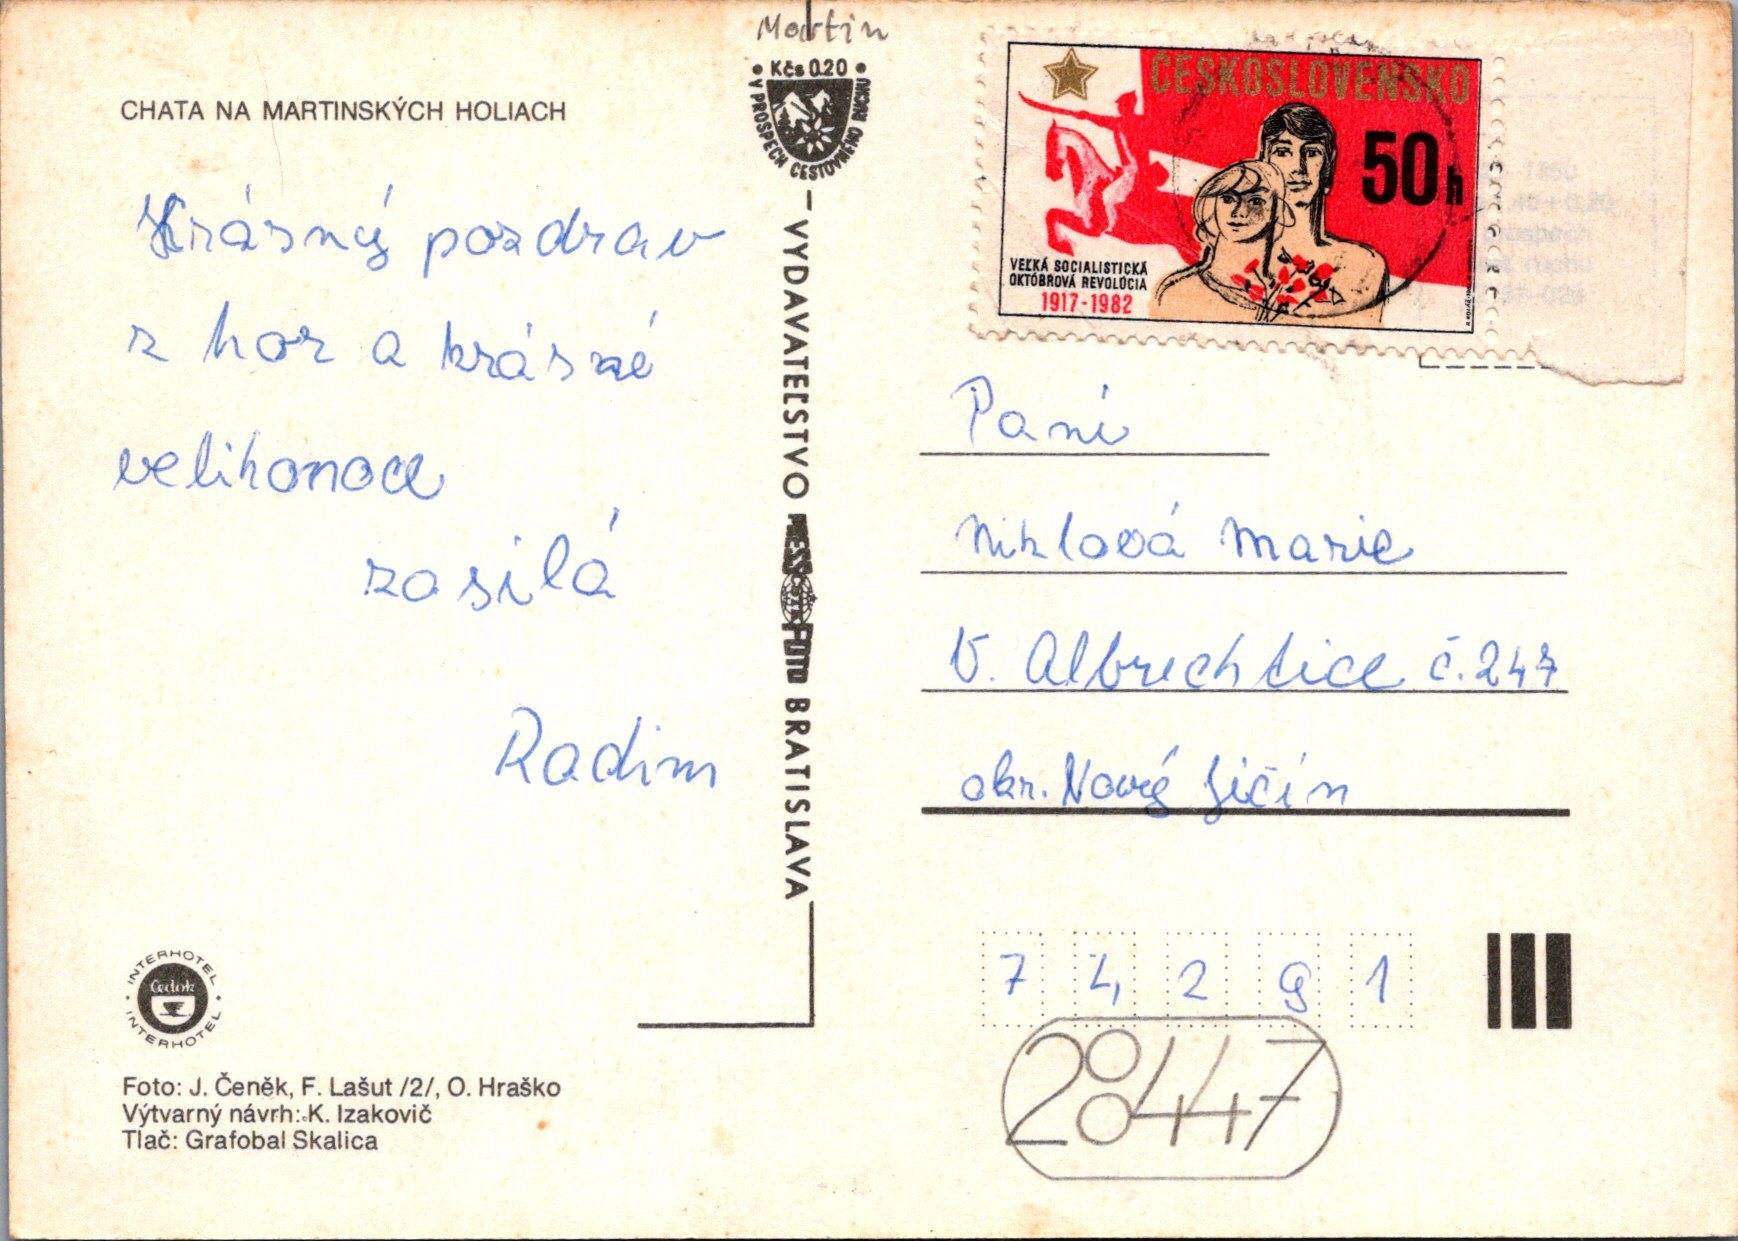 Martin
Kčs 0.20
V PROSPECH CESTOVNÉHO RUCHU
CHATA NA MARTINSKÝCH HOLIACH
Krásný pozdrav
z hor a krásné
velikonoce
zasílá
Radim
INTERHOTEL
Čedok
INTERHOTEL
Foto: J. Čeněk, F. Lašut /2/, O. Hraško
Výtvarný návrh: K. Izakovič
Tlač: Grafobal Skalica
– VYDAVATEĽSTVO PRESSFOTO BRATISLAVA
ČESKOSLOVENSKO
50 h
VEĽKÁ SOCIALISTICKÁ
OKTÓBROVÁ REVOLÚCIA
1917-1982
Paní
Niklová Marie
V. Albrechtice č. 247
okr. Nový Jičín
7 4 2 9 1
28447